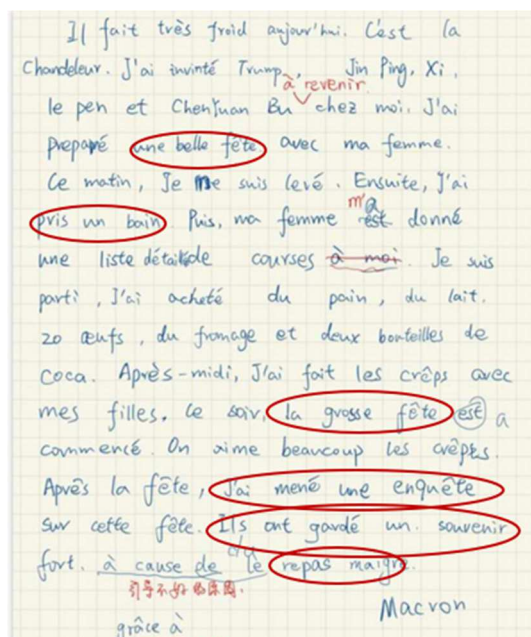 Il fait très froid aujourd'hui. C'est la
Chandeleur. J'ai invinté Trump, Jin Ping, Xi,
à revenir
le pen et ChenYuan Bu chez moi. J'ai
preparé une belle fête avec ma femme.
Ce matin, Je me suis levé. Ensuite, J'ai
pris un bain. Puis, ma femme est m'a donné
une liste détailde courses à moi. Je suis
parti, J'ai acheté du pain, du lait.
20 œufs, du fromage et deux bouteilles de
coca. Après-midi, J'ai fait les crêps avec
mes filles. Ce soir, la grosse fête est a
commencé. On aime beaucoup les crêpes.
Après la fête, J'ai mené une enquête
sur cette fête. Ils ont gardé un souvenir
fort. à cause de le du repas maigre.
引导不好的原因.
Macron
grâce à